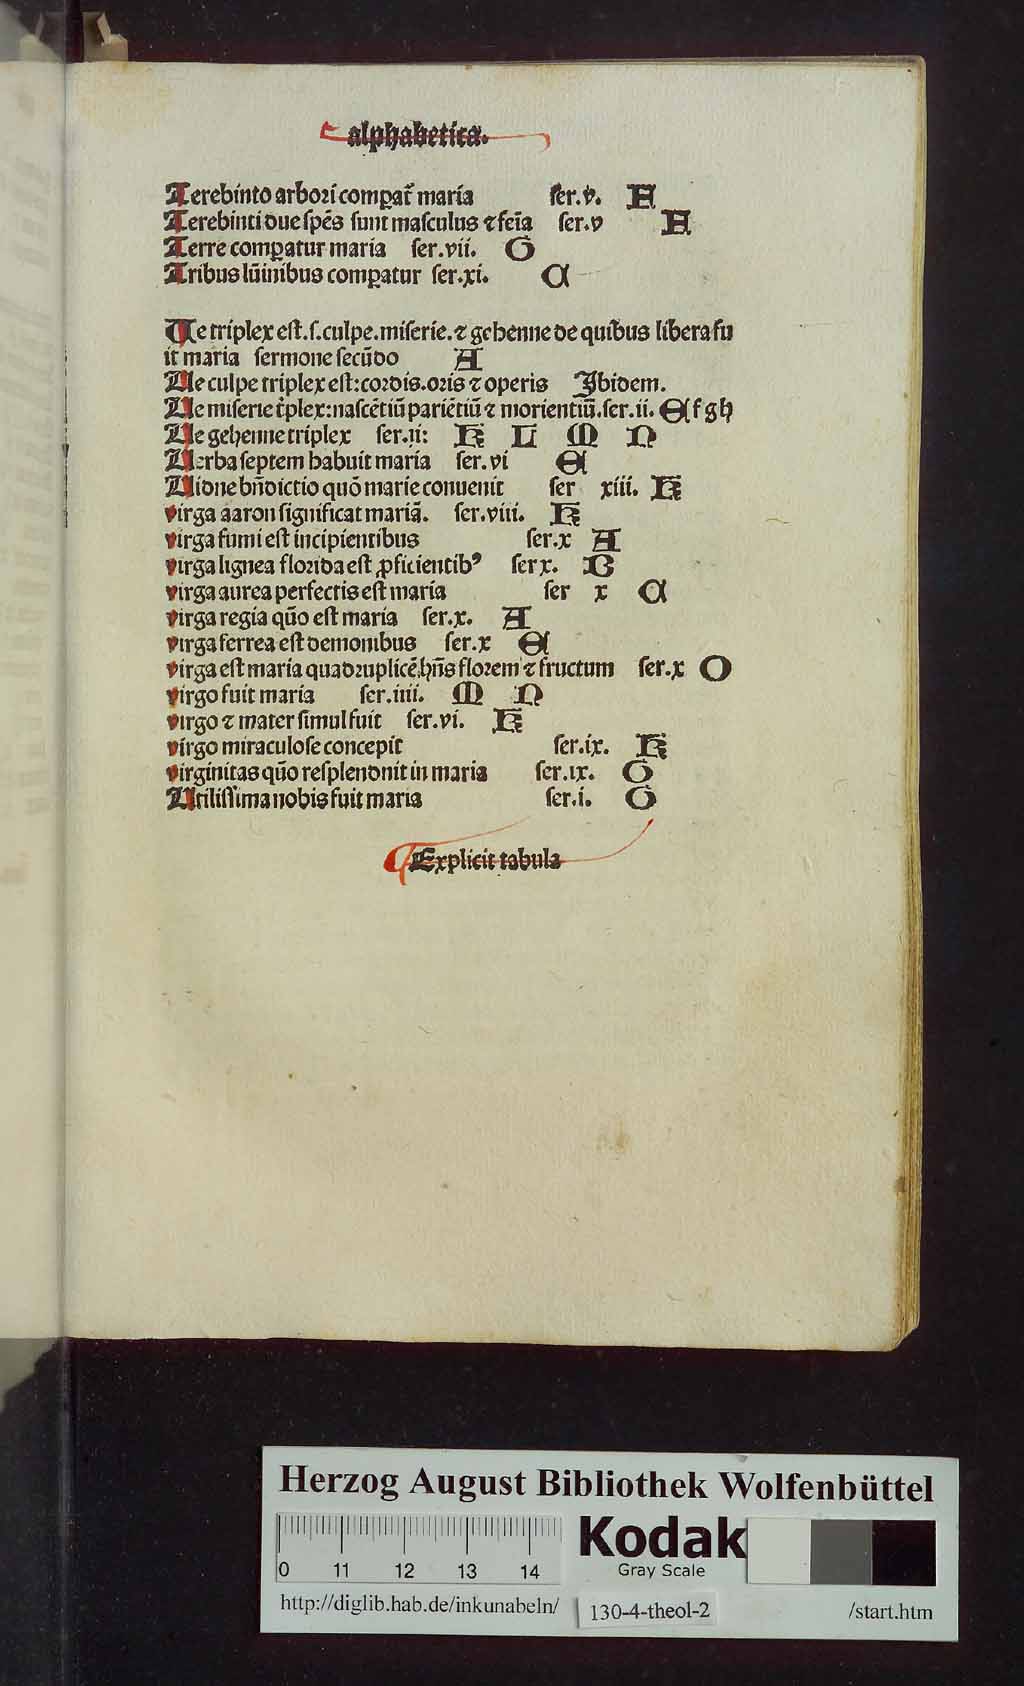 alphabetica.
Terebinto arbori comꝑat᷑ maria ser.v. H
Terebinti due spēs sunt masculus ⁊ feīa ser.v H
Terre comꝑatur maria ser.vii. G
Tribus lūinibus comꝑatur ser.xi. C
Ue triplex est.s.culpe.miserie.⁊ gehenne de quibus libera fu
it maria sermone secūdo A
Ue culpe triplex est:cordis.oris ⁊ operis Ibidem.
Ue miserie t̄plex:nascētiū pariētiū ⁊ morientiū.ser.ii. E f g h
Ue gehenne triplex ser.ii: K L M N
Uerba septem habuit maria ser.vi E
Uidue bn̄dictio quō marie conuenit ser xiii. K
virga aaron significat mariā. ser.viii. K
virga fumi est incipientibus ser.x A
virga lignea florida est ꝓficientibꝰ ser x. B
virga aurea perfectis est maria ser x C
virga regia qūo est maria ser.x. A
virga ferrea est demonibus ser.x E
virga est maria quadruplicē hn̄s florem ⁊ fructum ser.x O
virgo fuit maria ser.iiii. M N
virgo ⁊ mater simul fuit ser.vi. K
virgo miraculose concepit ser.ix. K
virginitas qūo resplenduit in maria ser.ix. G
Utilissima nobis fuit maria ser.i. G
Explicit tabula
Herzog August Bibliothek Wolfenbüttel
0 11 12 13 14
Kodak
Gray Scale
http://diglib.hab.de/inkunabeln/ 130-4-theol-2 /start.htm